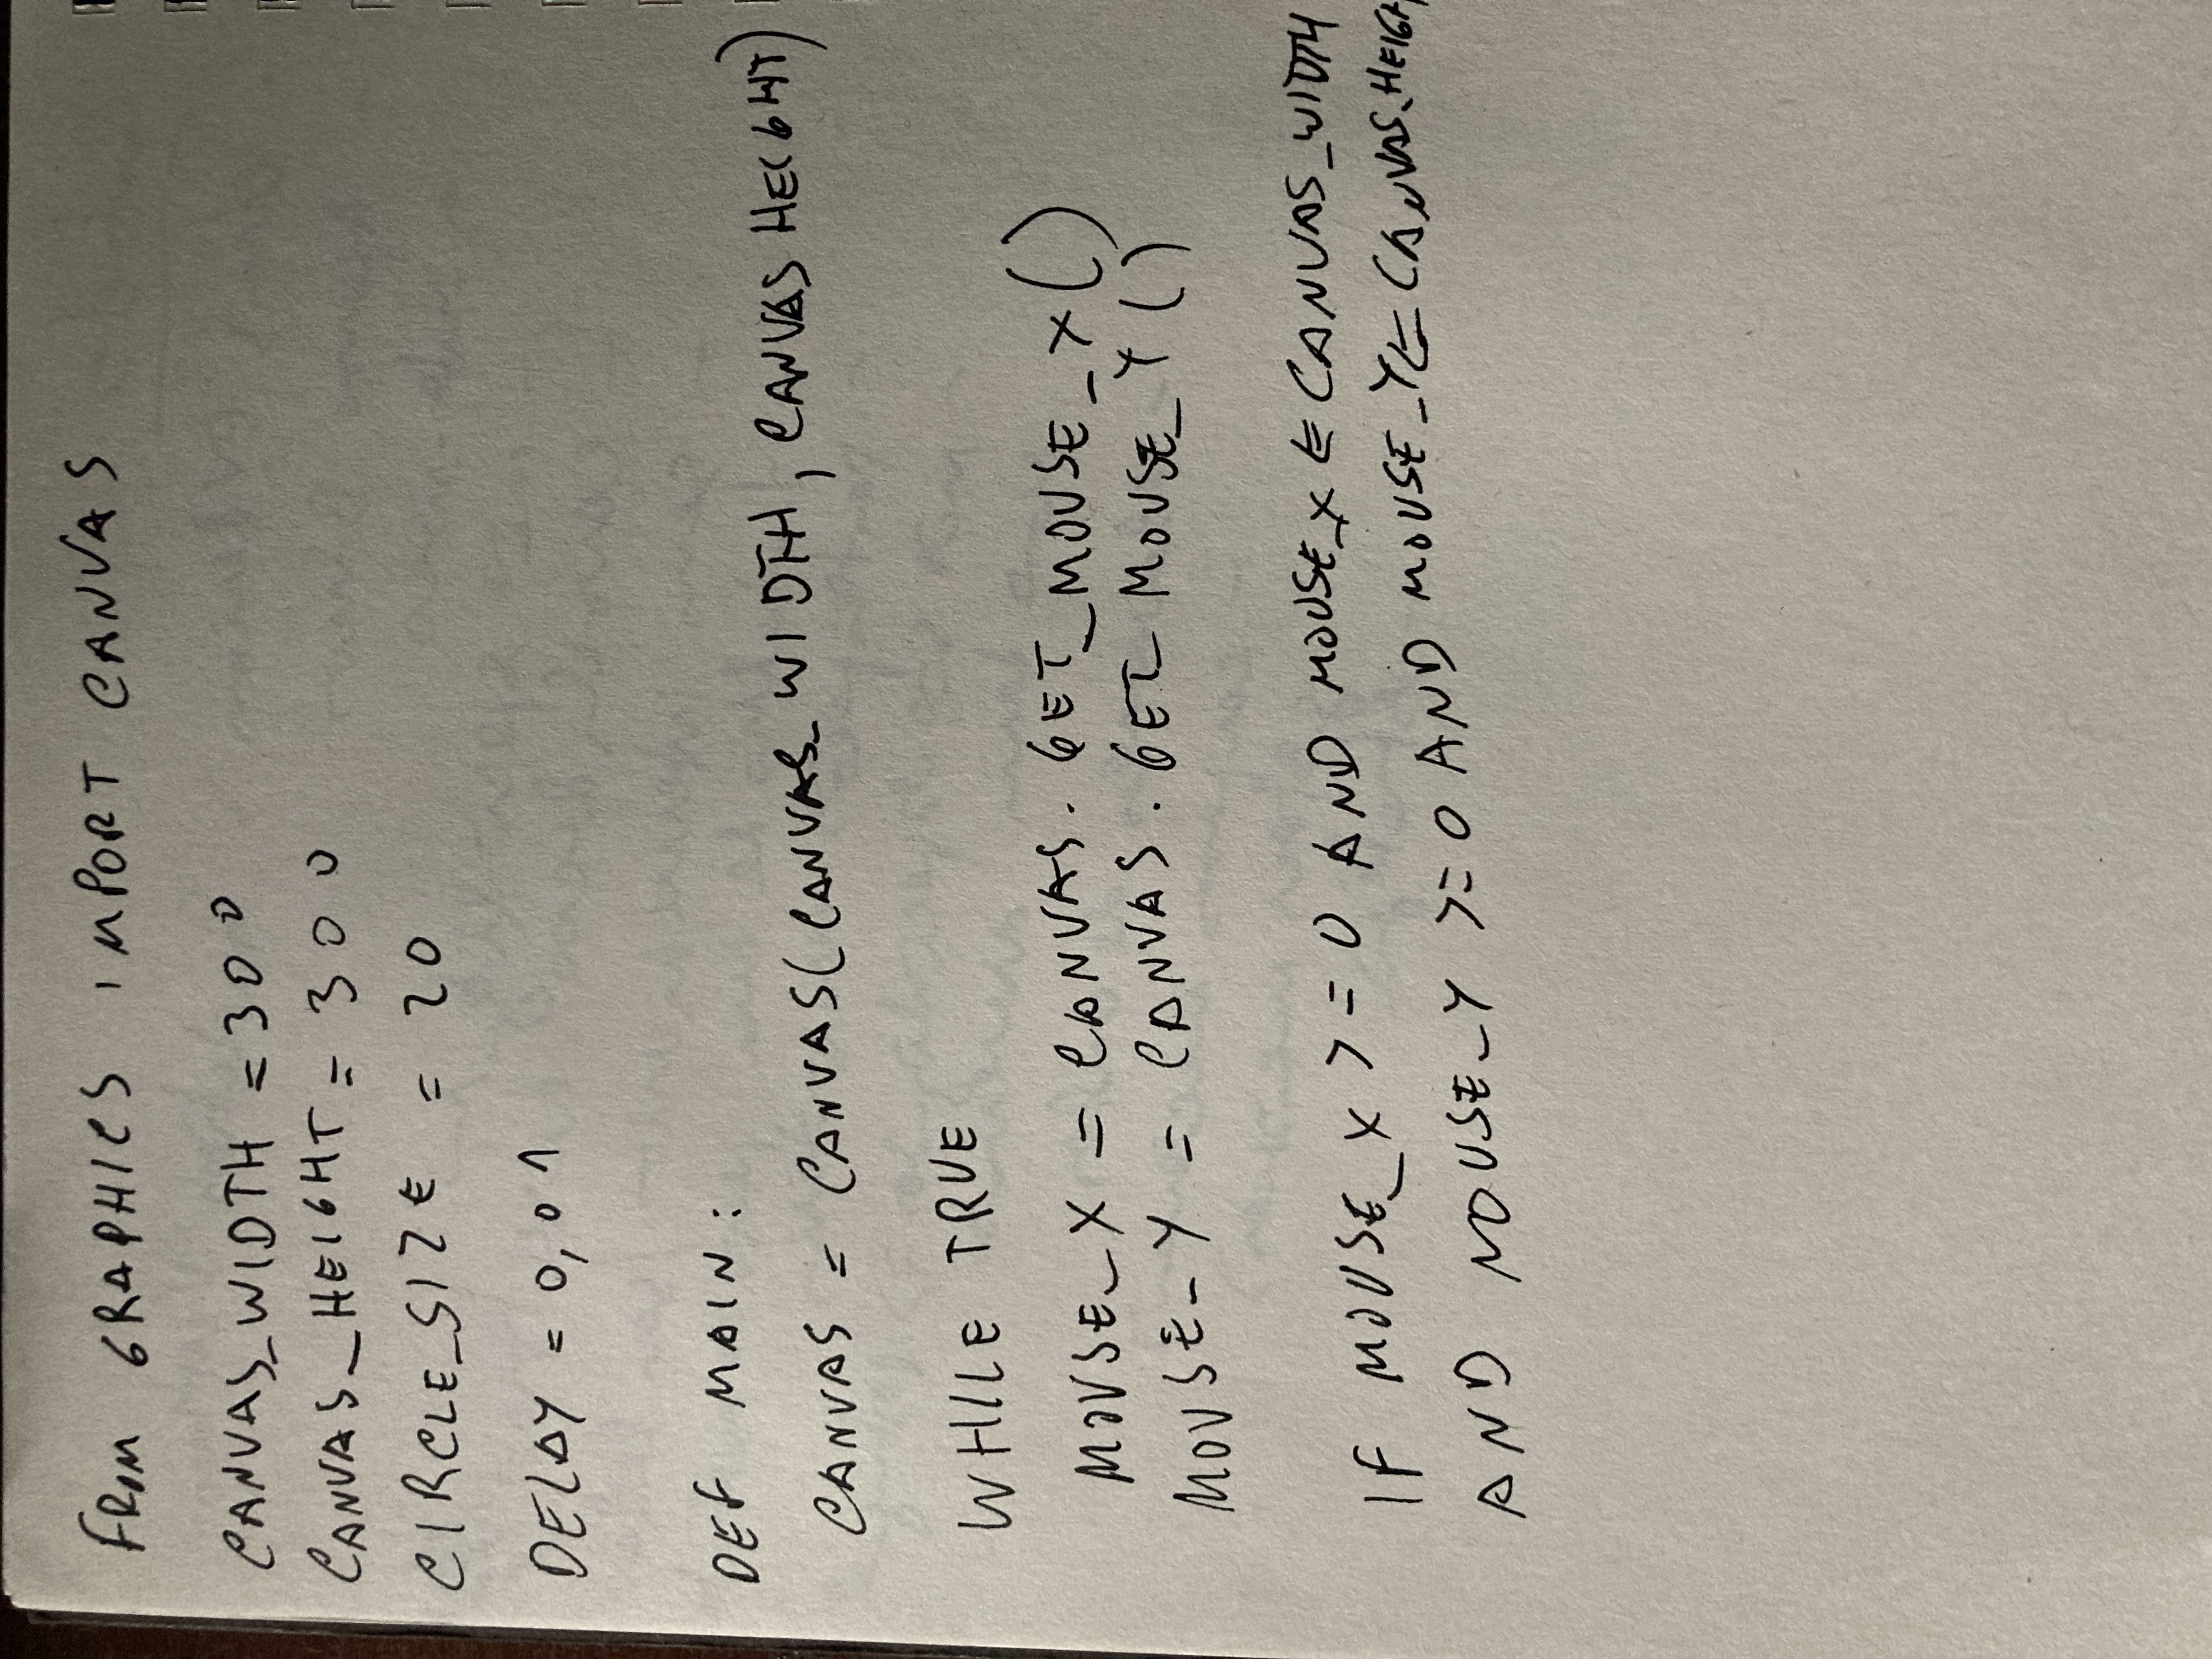 FROM GRAPHICS IMPORT CANVAS
CANVAS_WIDTH = 300
CANVAS_HEIGHT = 300
CIRCLE_SIZE = 20
DELAY = 0,01
DEF MAIN:
CANVAS = CANVAS(CANVAS_WIDTH, CANVAS HEIGHT)
WHILE TRUE
MOUSE_X = CANVAS. GET_MOUSE_X()
MOUSE_Y = CANVAS. GET_MOUSE_Y()
IF MOUSE_X >= 0 AND MOUSE_X <= CANVAS_WIDTH
AND MOUSE_Y >= 0 AND MOUSE_Y <= CANVAS_HEIGH